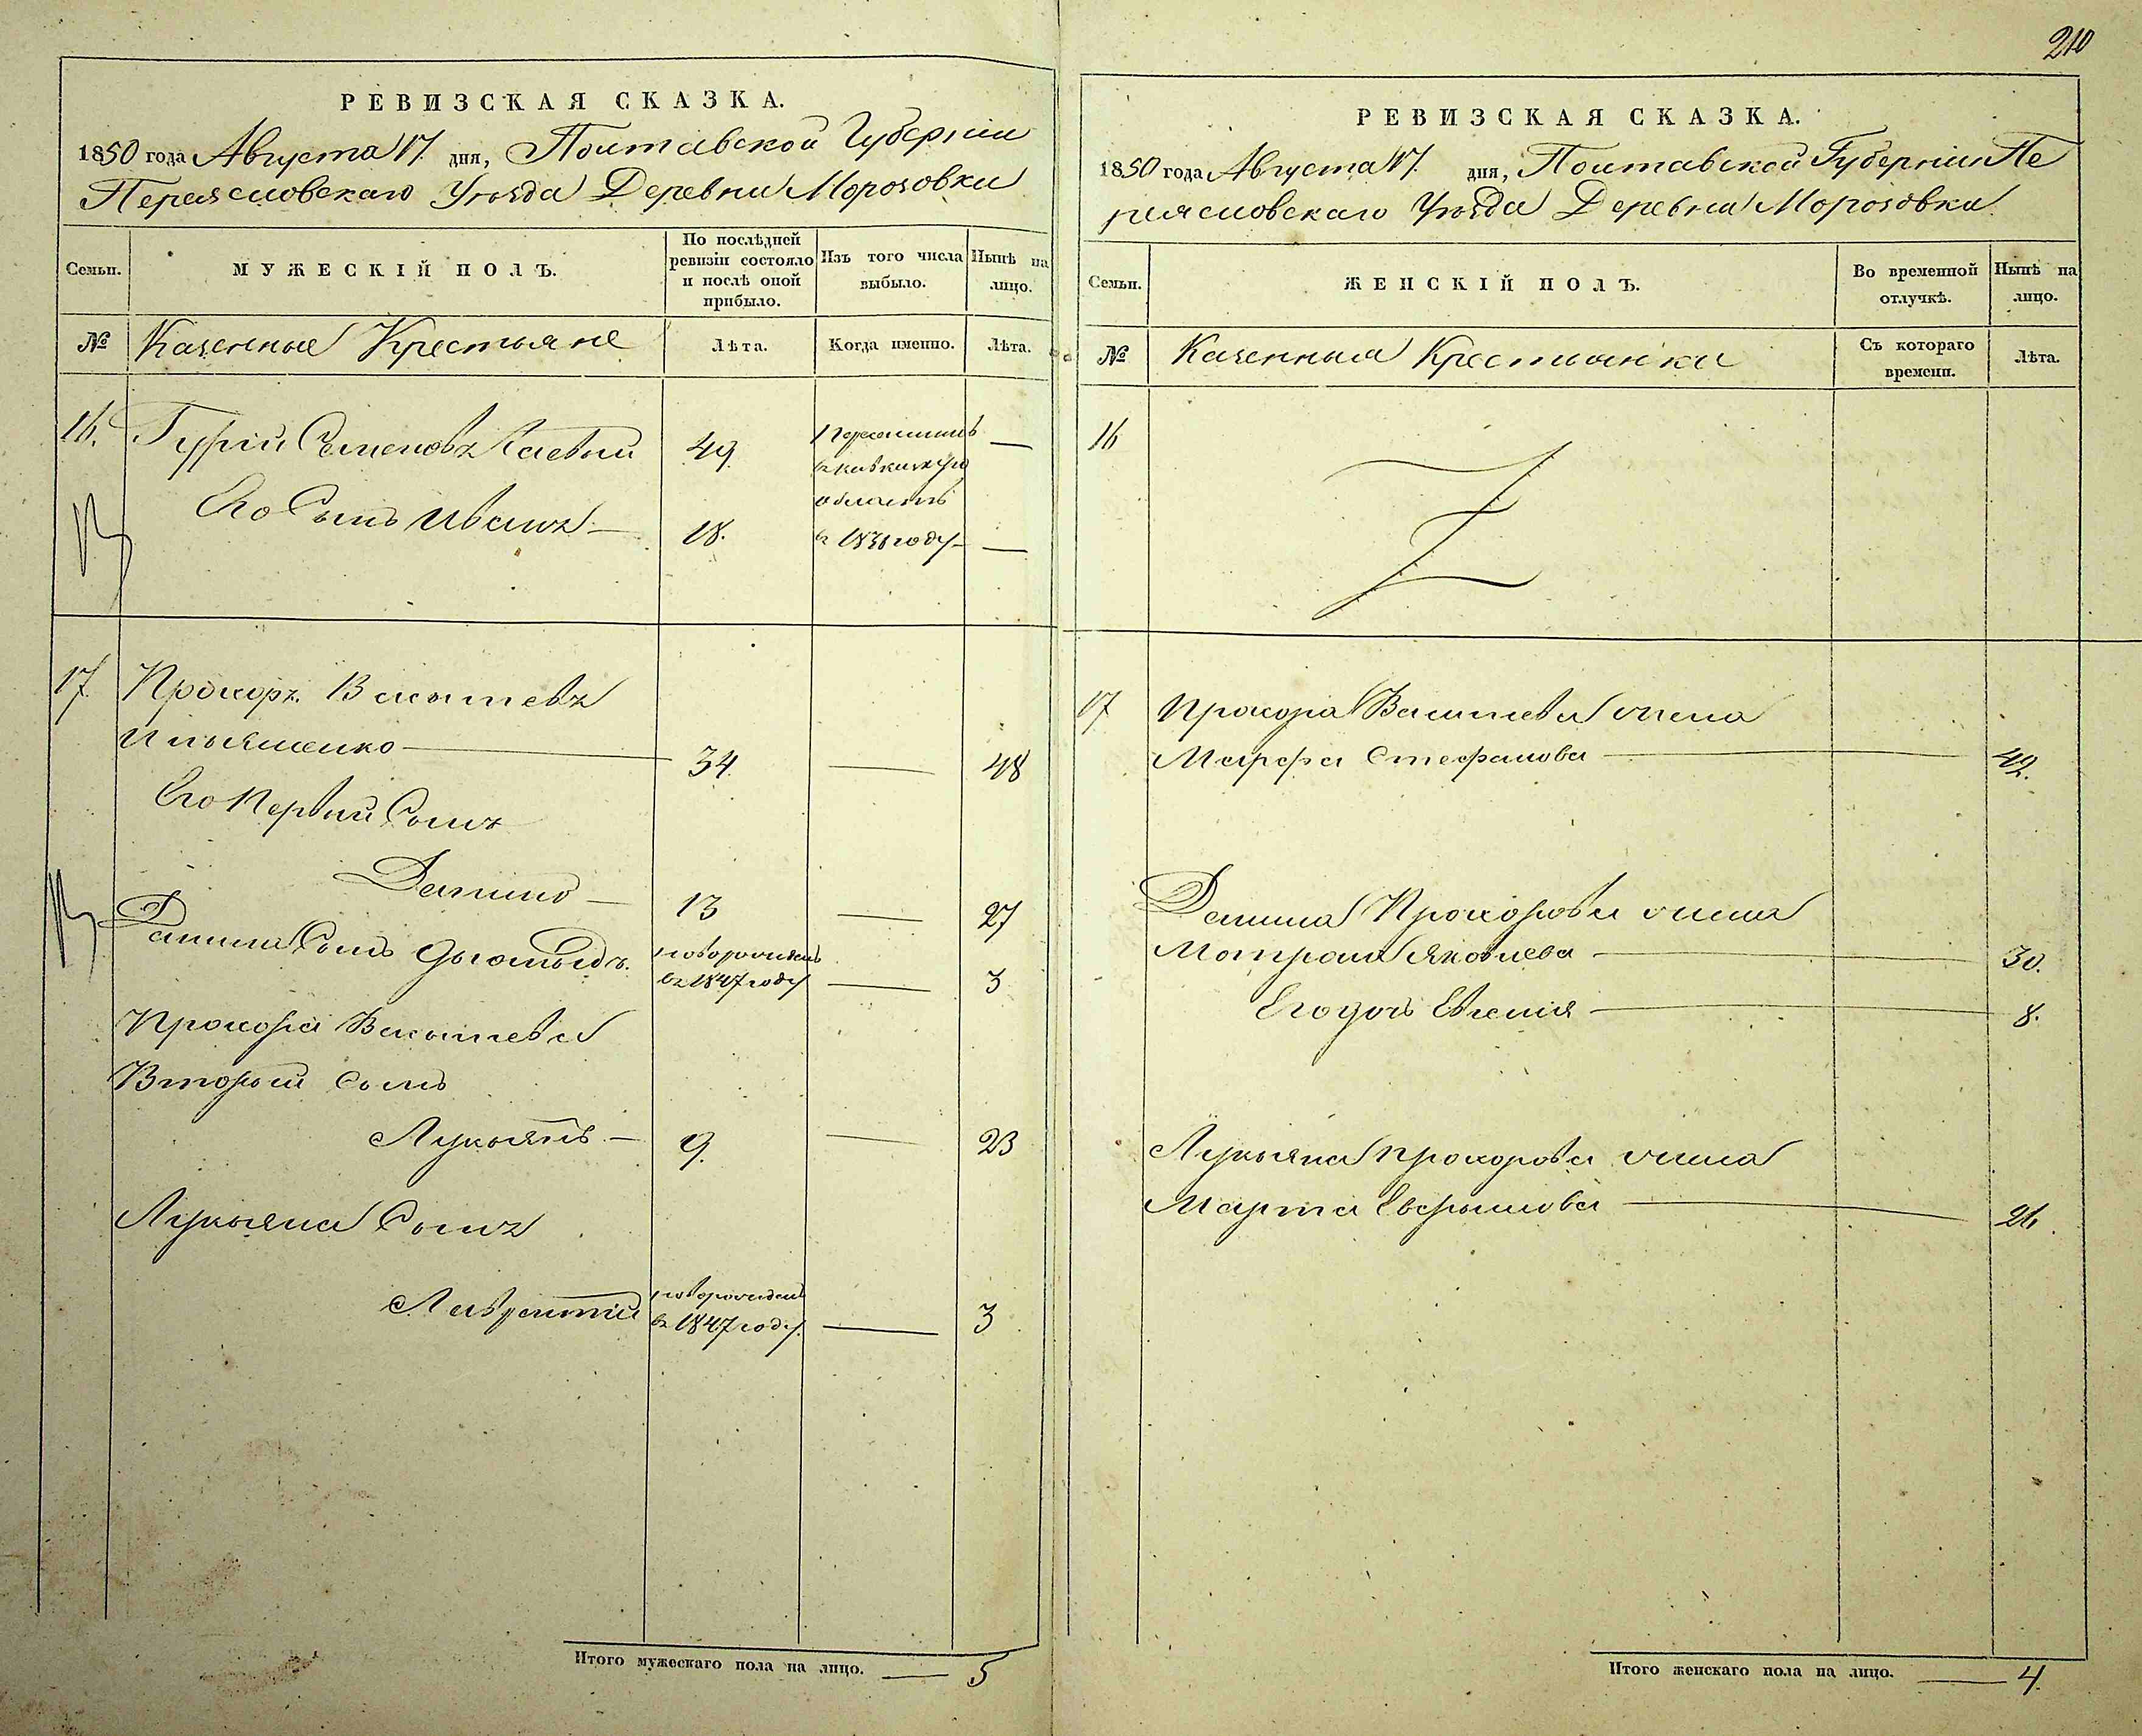 210
РЕВИЗСКАЯ СКАЗКА.
1850 года Августа 17. дня, Полтавской Губернiи
Переясловскаго Уѣзда Деревни Морозовки
Семьи.
МУЖЕСКІЙ ПОЛЪ.
По послѣдней ревизіи состояло и послѣ оной прибыло.
Изъ того числа выбыло.
Нынѣ на лицо.
№
Казенные Крестьяне
Лѣта.
Когда именно.
Лѣта.
16. Гурій Семеновъ 49. Переселились —
въ кавказскую
область
Его Сынъ Иванъ — 18. въ 1831 году — —
17. Прохоръ Васильевъ
Ильяшенко — 34. — 48
Его Первый Сынъ
Данило — 13 — 27
Данила Сынъ новорожденъ
въ 1847 году — 3
Прохора Васильева
Второй сынъ
Лукьянъ — 9. — 23
Лукьяна Сынъ
Лаврентій новорожденъ
въ 1847 году. — 3
Итого мужескаго пола на лицо. — 5
РЕВИЗСКАЯ СКАЗКА.
1850 года Августа 17. дня, Полтавской Губерніи Пе
реясловскаго Уѣзда Деревни Морозовки.
Семьи.
ЖЕНСКІЙ ПОЛЪ.
Во временной отлучкѣ.
Нынѣ на лицо.
№
Казенныя Крестьянки
Съ котораго времени.
Лѣта.
16
17 Прохора Васильева жена
Марфа Стефанова — 42.
Данила Прохорова жена
Мотрона Яковлева — 30.
Его дочь Евгенія — 8.
Лукьяна Прохорова жена
Марта — 21.
Итого женскаго пола на лицо. — 4.